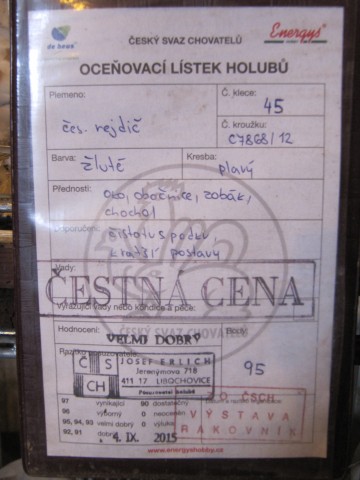 de heus
ČESKÝ SVAZ CHOVATELŮ
Energys
OCEŇOVACÍ LÍSTEK HOLUBŮ
Plemeno:
čes. rejdič
Č. klece:
45
Č. kroužku:
C7868/12
Barva:
žlutě
Kresba:
plavý
Přednosti:
oko, obočnice, zobák,
chochol
Doporučení:
čistotu spodku
kratší postavy
Vady:
ČESTNÁ CENA
Vyřazující vady nebo kondice a péče:
Hodnocení:
VELMI DOBRÝ
Body:
95
ČESKÝ SVAZ CHOVATELŮ
Č S
CH
JOSEF ERLICH
Jeronýmova 718
411 17 LIBOCHOVICE
Posuzovatel holubů
97 vynikající 90 dostatečný
96 výborný 0 neoceněn
95, 94, 93 velmi dobrý 0 výluka
92, 91 dobrý
4. IX. 2015
ZO ČSCH
VÝSTAVA
RAKOVNÍK
www.energyshobby.cz